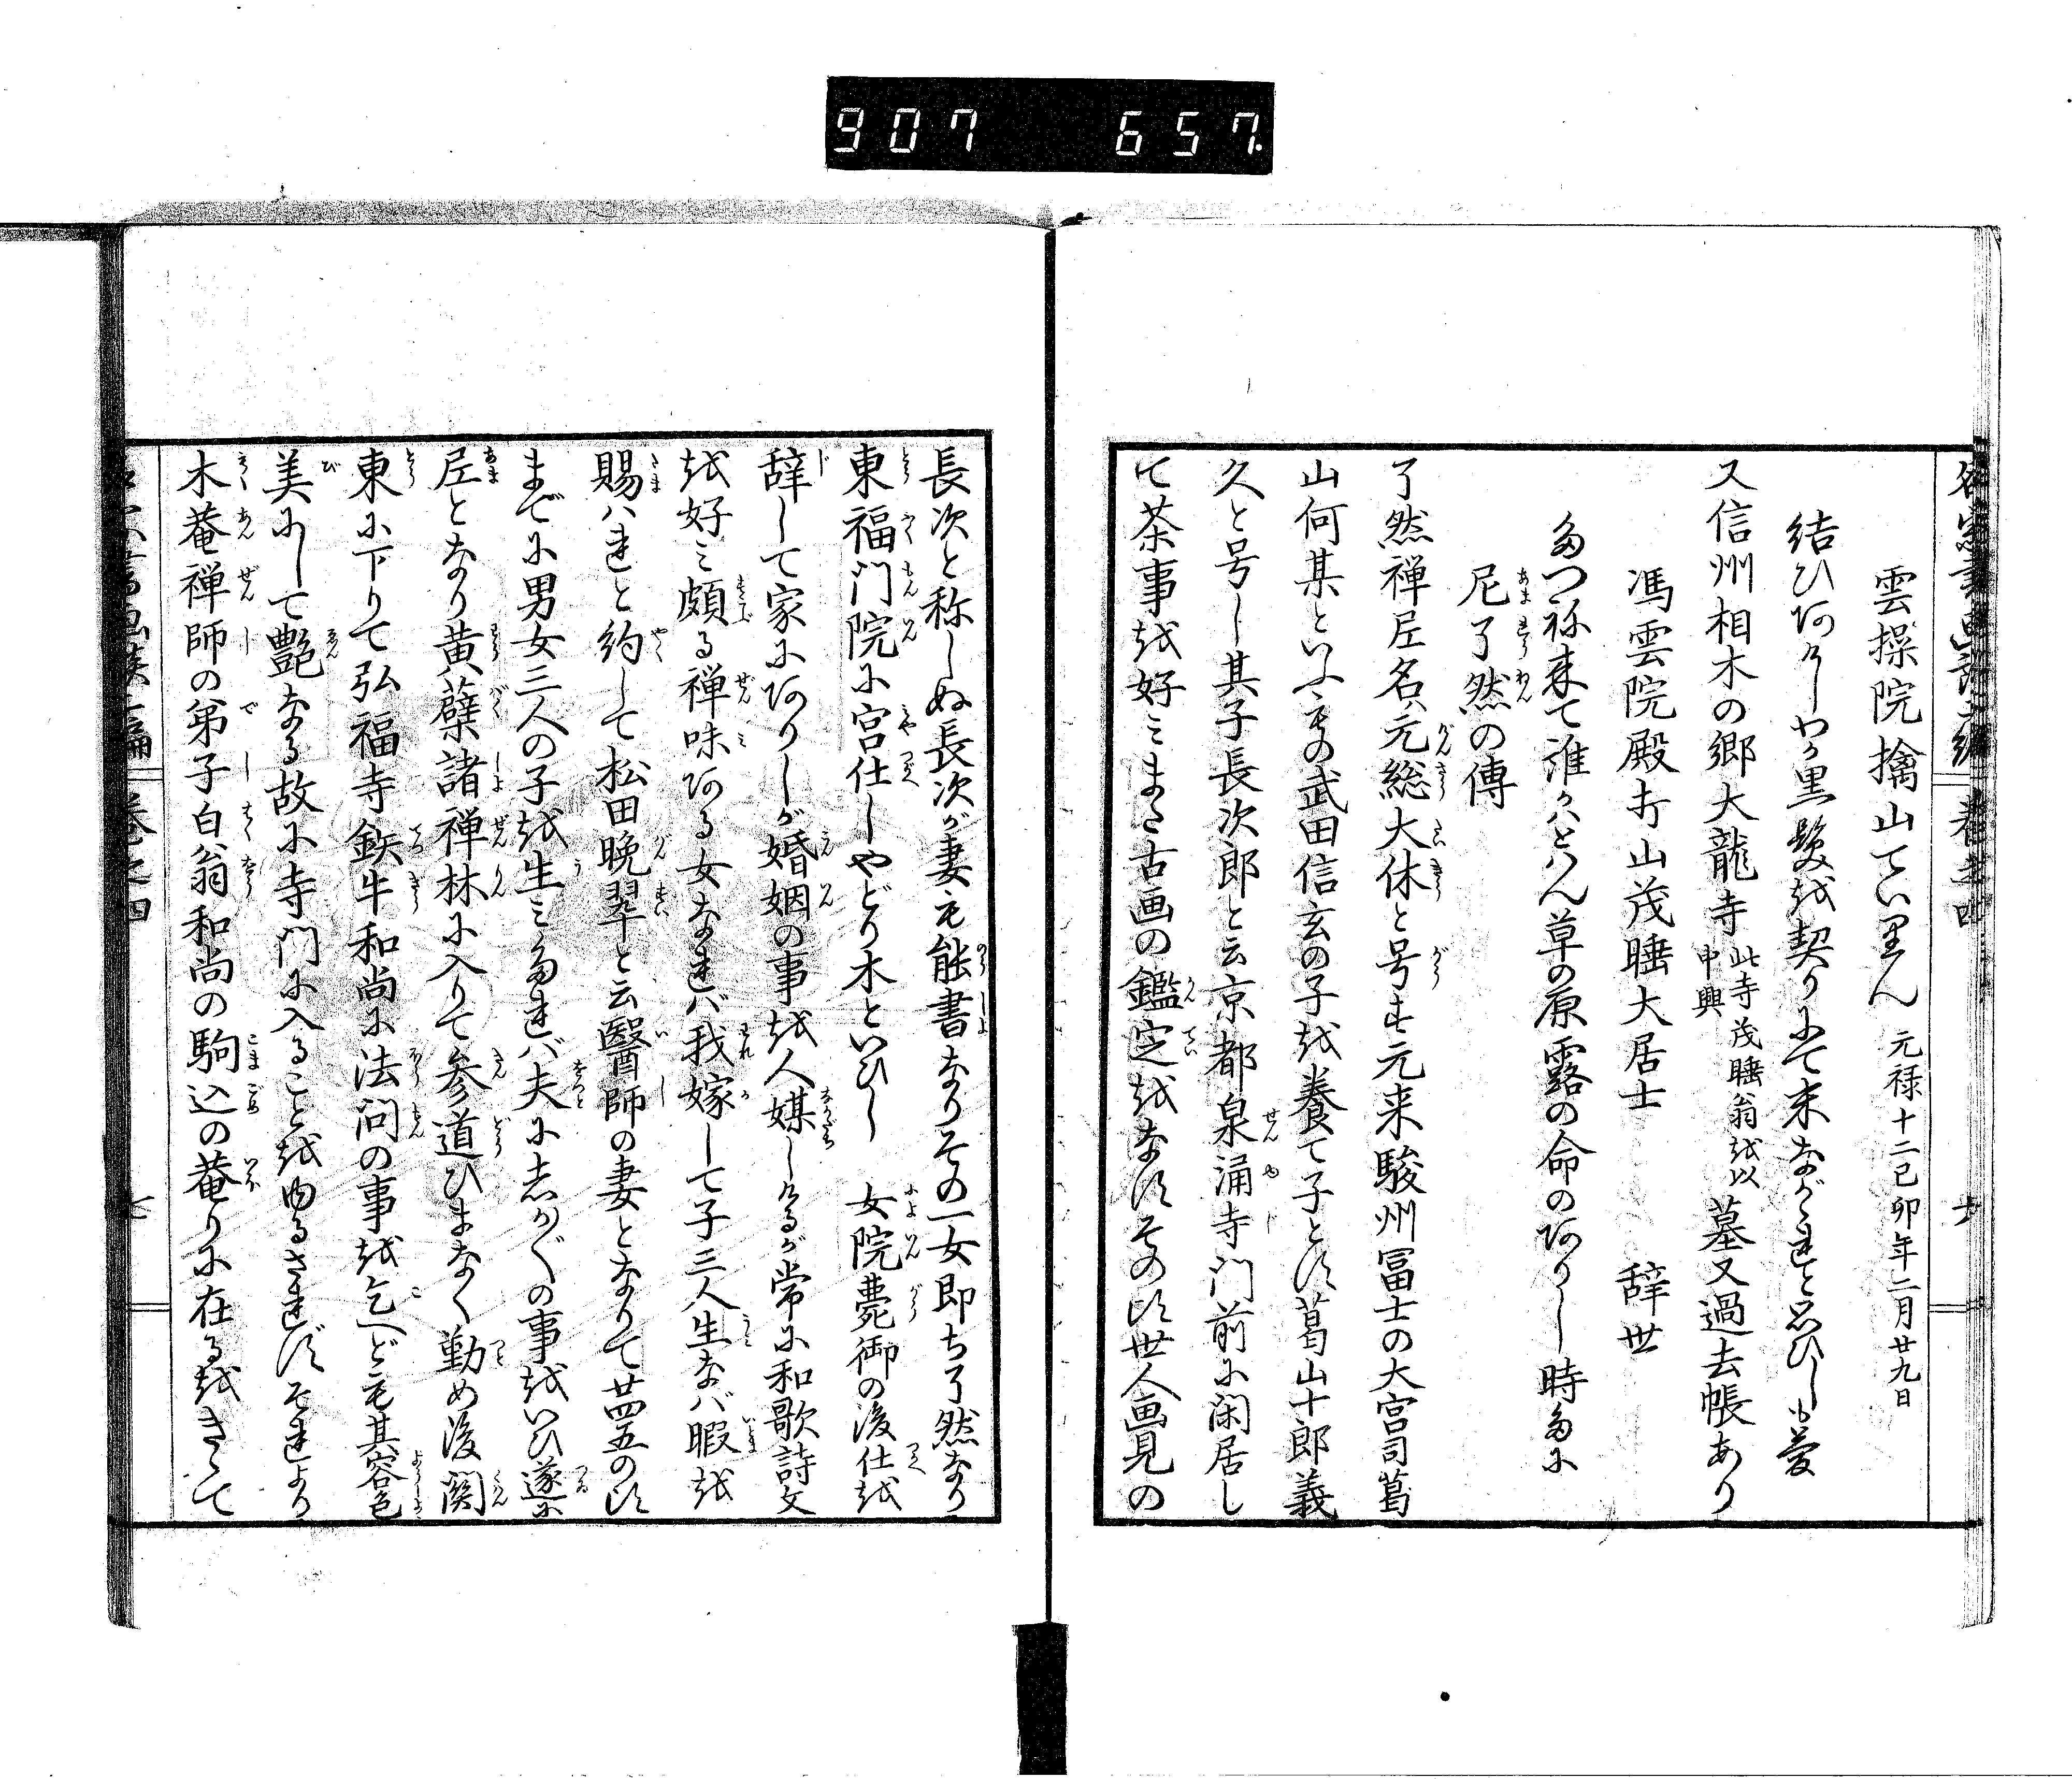 907 657.
雲操院擒山ていりん 元禄十二己卯年二月廿九日
結ひ阿りしわか黒髪越契りにて末ながれと思ひしも夢
又信州相木の郷大龍寺 此寺茂睡翁越以中興 墓又過去帳あり
馮雲院殿方山茂睡大居士 辞世
多つ祢来て誰かはとはん草の原露の命の阿りし時多に
尼了然の傳
了然禅尼名ハ元総大休と号す元来駿州冨士の大宮司葛
山何某といふもの武田信玄の子越養て子と須葛山十郎義
久と号し其子長次郎と云京都泉涌寺門前に閑居し
て茶事越好ミまた古画の鑑定越な須その頃世人画見の
長次と称しぬ長次が妻も能書なりその一女即ち了然なり
東福門院に宮仕しやどり木といひし 女院薨御の後仕越
辞して家に阿りしが婚姻の事越人媒しけるが常に和歌詩文
越好ミ頗る禅味阿る女なれバ我嫁して子三人生なバ暇越
賜ハれと約して松田晩翠と云醫師の妻となりて廿四五の頃
までに男女三人の子越生ミ多れバ夫に志か〴〵の事越いひ遂に
尼となり黄蘗諸禅林に入りて参道ひまなく勤め後関
東に下りて弘福寺鉄牛和尚に法問の事越乞へども其容色
美にして艶なる故に寺門に入ること越ゆるされ須それより
木菴禅師の弟子白翁和尚の駒込の菴りに在る越きゝて